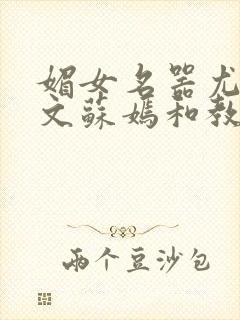 媚女名器尤
文蘇媽和教
兩个豆沙包